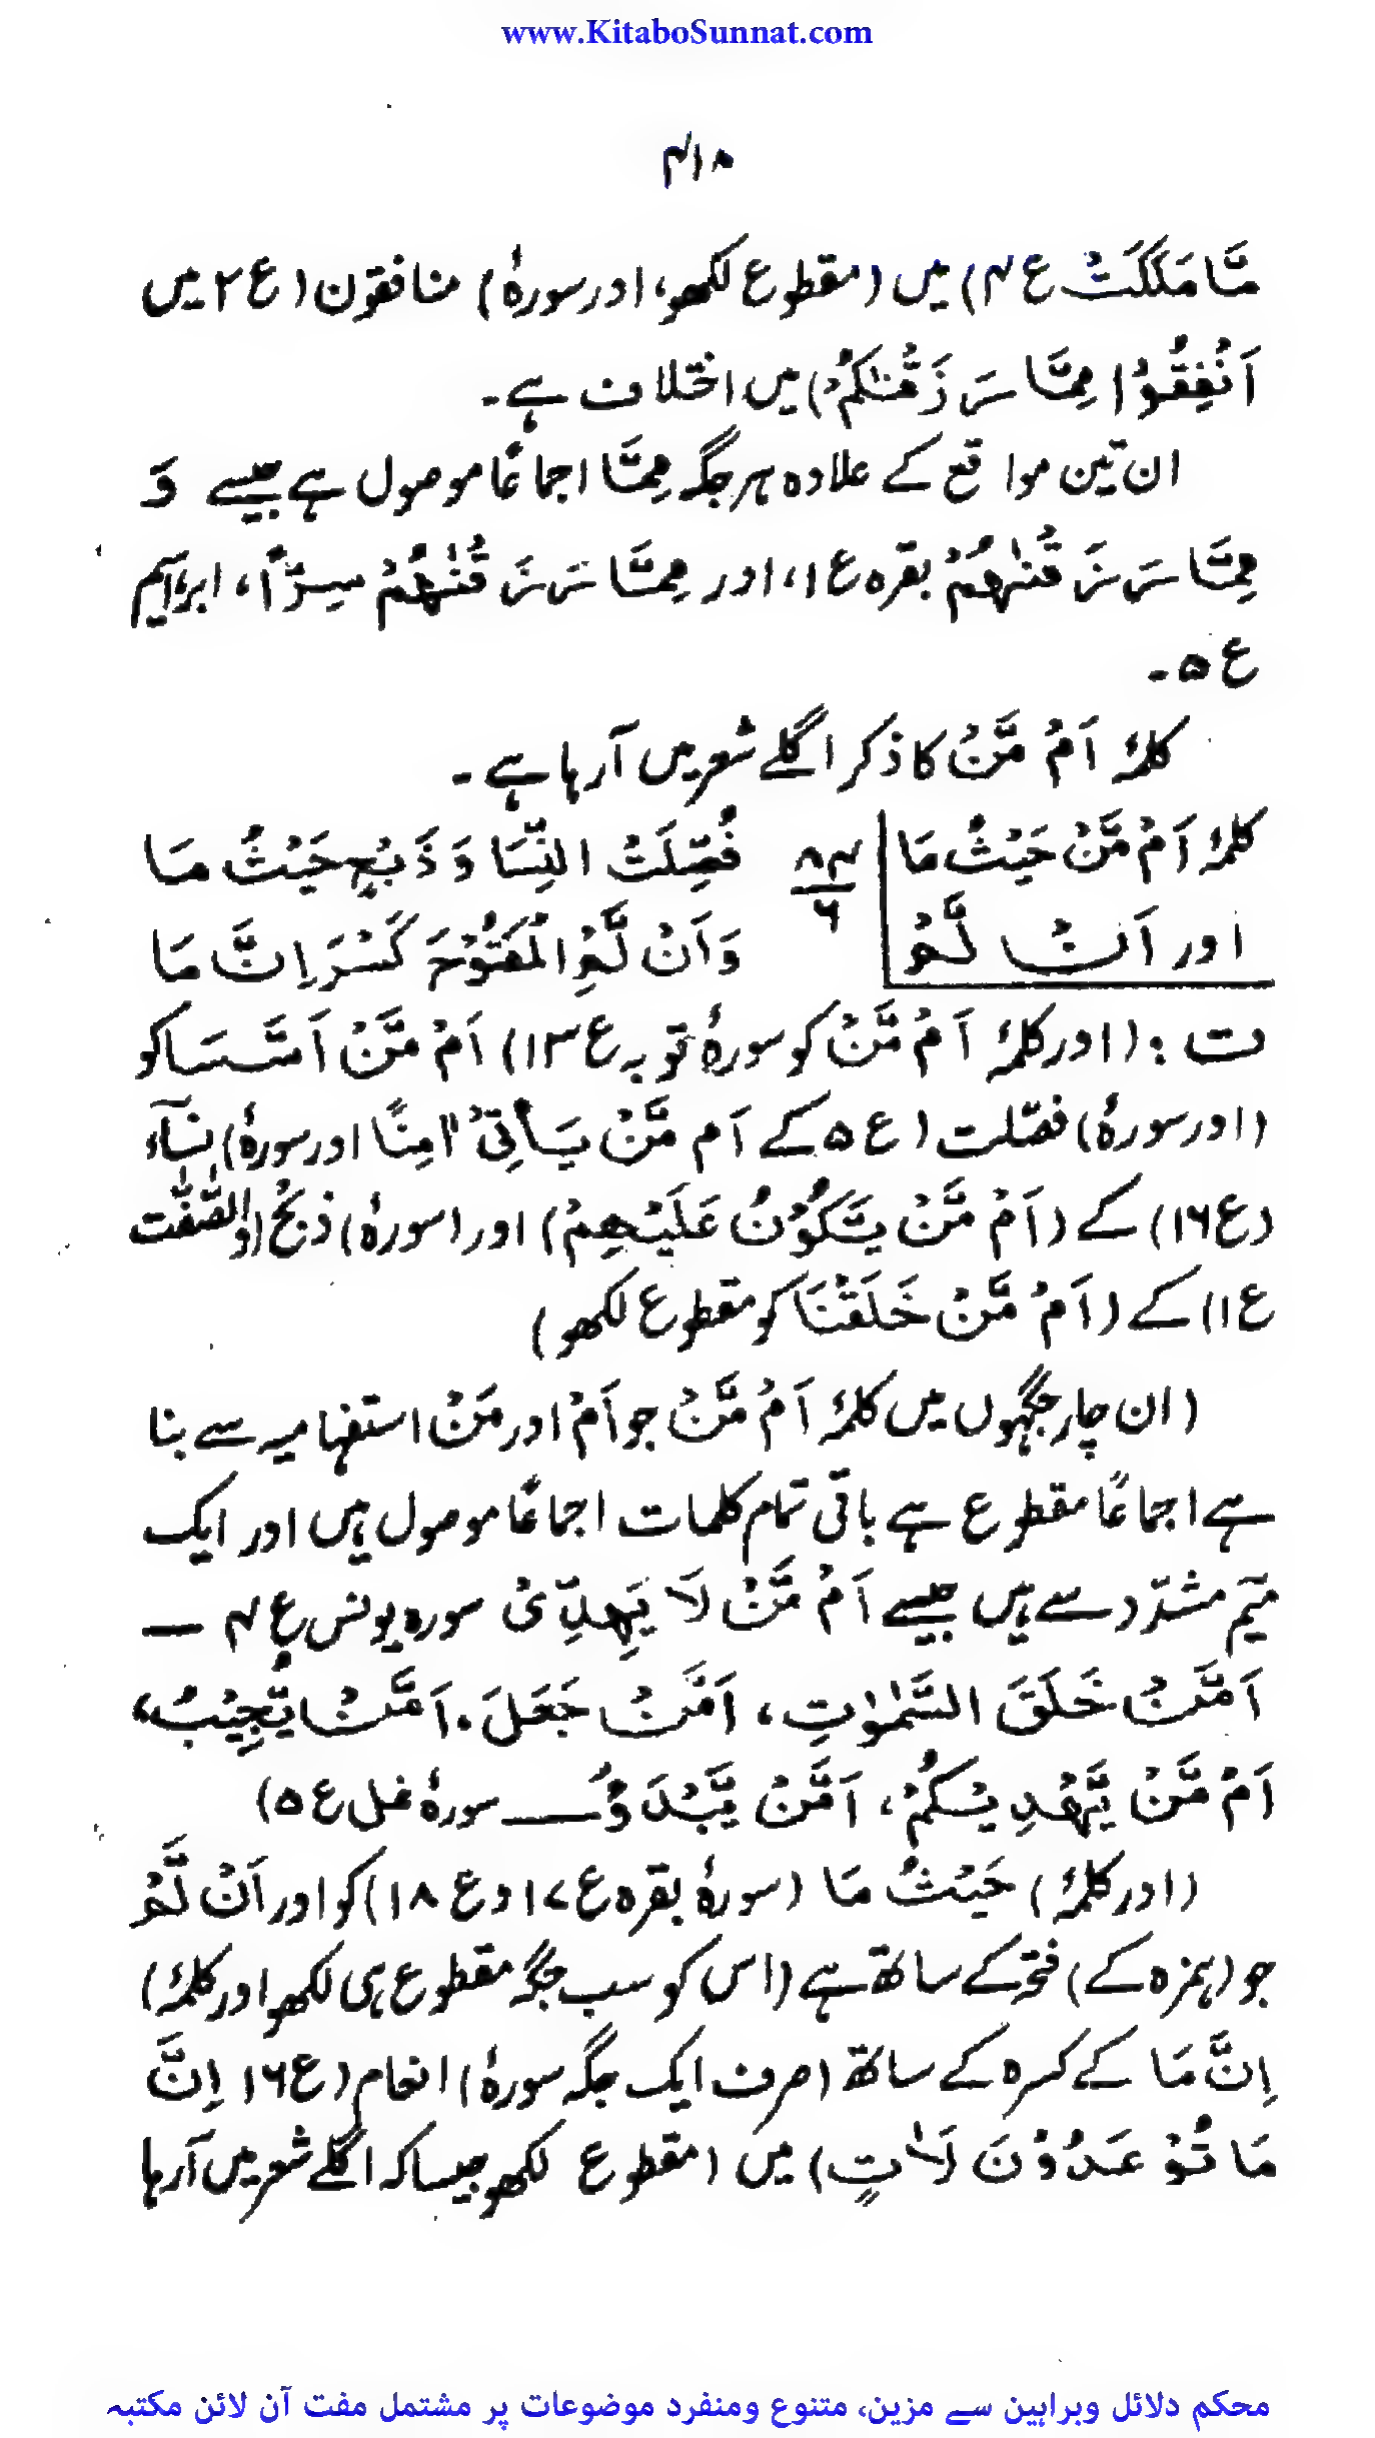 www.KitaboSunnat.com
۴۱۸
مَّا مَلَکَتْ ع ۴) میں (مقطوع لکھو، اور سورۂ) منافقون (ع ۲ میں
اَنْفِقُوْا مِمَّا رَزَقْنٰکُمْ) میں اختلاف ہے۔
ان تین مواقع کے علاوہ ہر جگہ مِمَّا اجماعًا موصول ہے جیسے وَ
مِمَّا رَزَقْنٰهُمْ بقرہ ع ۱، اور مِمَّا رَزَقْنٰهُمْ سِرًّا، ابراہیم
ع ۵۔
کلمۂ اَمْ مَّنْ کا ذکر اگلے شعر میں آرہا ہے۔
کلمۂ اَمْ مَّنْ حَیْثُ مَا
اور اَنْ لَّمْ
۸۴
۶
فُصِّلَتْ النِّسَا وَ ذَبْحٍ حَیْثُ مَا
وَاَنْ لَّمِ الْمَفْتُوْحَ کَسْرَ اِنَّ مَا
ت : (اور کلمۂ اَمْ مَّنْ کو سورۂ توبہ ع ۱۳) اَمْ مَّنْ اَسَّسَ کو
(اور سورۂ) فصّلت (ع ۵ کے اَم مَّنْ یَّاْتِیْ اٰمِنًا اور سورۂ) نسَآء
(ع ۱۶) کے (اَمْ مَّنْ یَّکُوْنُ عَلَیْهِمْ) اور (سورۂ) ذبح (والصّٰفّٰت
ع ۱) کے (اَمْ مَّنْ خَلَقْنَا کو مقطوع لکھو)
(ان چار جگہوں میں کلمۂ اَمْ مَّنْ جو اَمْ اور مَنْ استفہامیہ سے بنا
ہے اجماعًا مقطوع ہے باقی تمام کلمات اجماعًا موصول ہیں اور ایک
میّم مشدّد سے ہیں جیسے اَمْ مَّنْ لَا یَهِدِّیْ سورہ یونس ع ۴ —
اَمَّنْ خَلَقَ السَّمٰوٰتِ، اَمَّنْ جَعَلَ۔ اَمَّنْ یُّجِیْبُ،
اَمْ مَّنْ یَّهْدِیْکُمْ، اَمَّنْ یَّبْدَؤُ — سورۂ نمل ع ۵)
(اور کلمۂ) حَیْثُ مَا (سورۂ بقرہ ع ۱۷ و ع ۱۸) کو اور اَنْ لَّمْ
جو (ہمزہ کے) فتحہ کے ساتھ ہے (اس کو سب جگہ مقطوع ہی لکھو اور کلمۂ)
اِنَّ مَا کے کسرہ کے ساتھ (صرف ایک جگہ سورۂ) انعام (ع ۱۶ اِنَّ
مَا تُوْعَدُوْنَ لَاٰتٍ) میں (مقطوع لکھو جیسا کہ اگلے شعر میں آرہا
محکم دلائل وبراہین سے مزین، متنوع ومنفرد موضوعات پر مشتمل مفت آن لائن مکتبہ